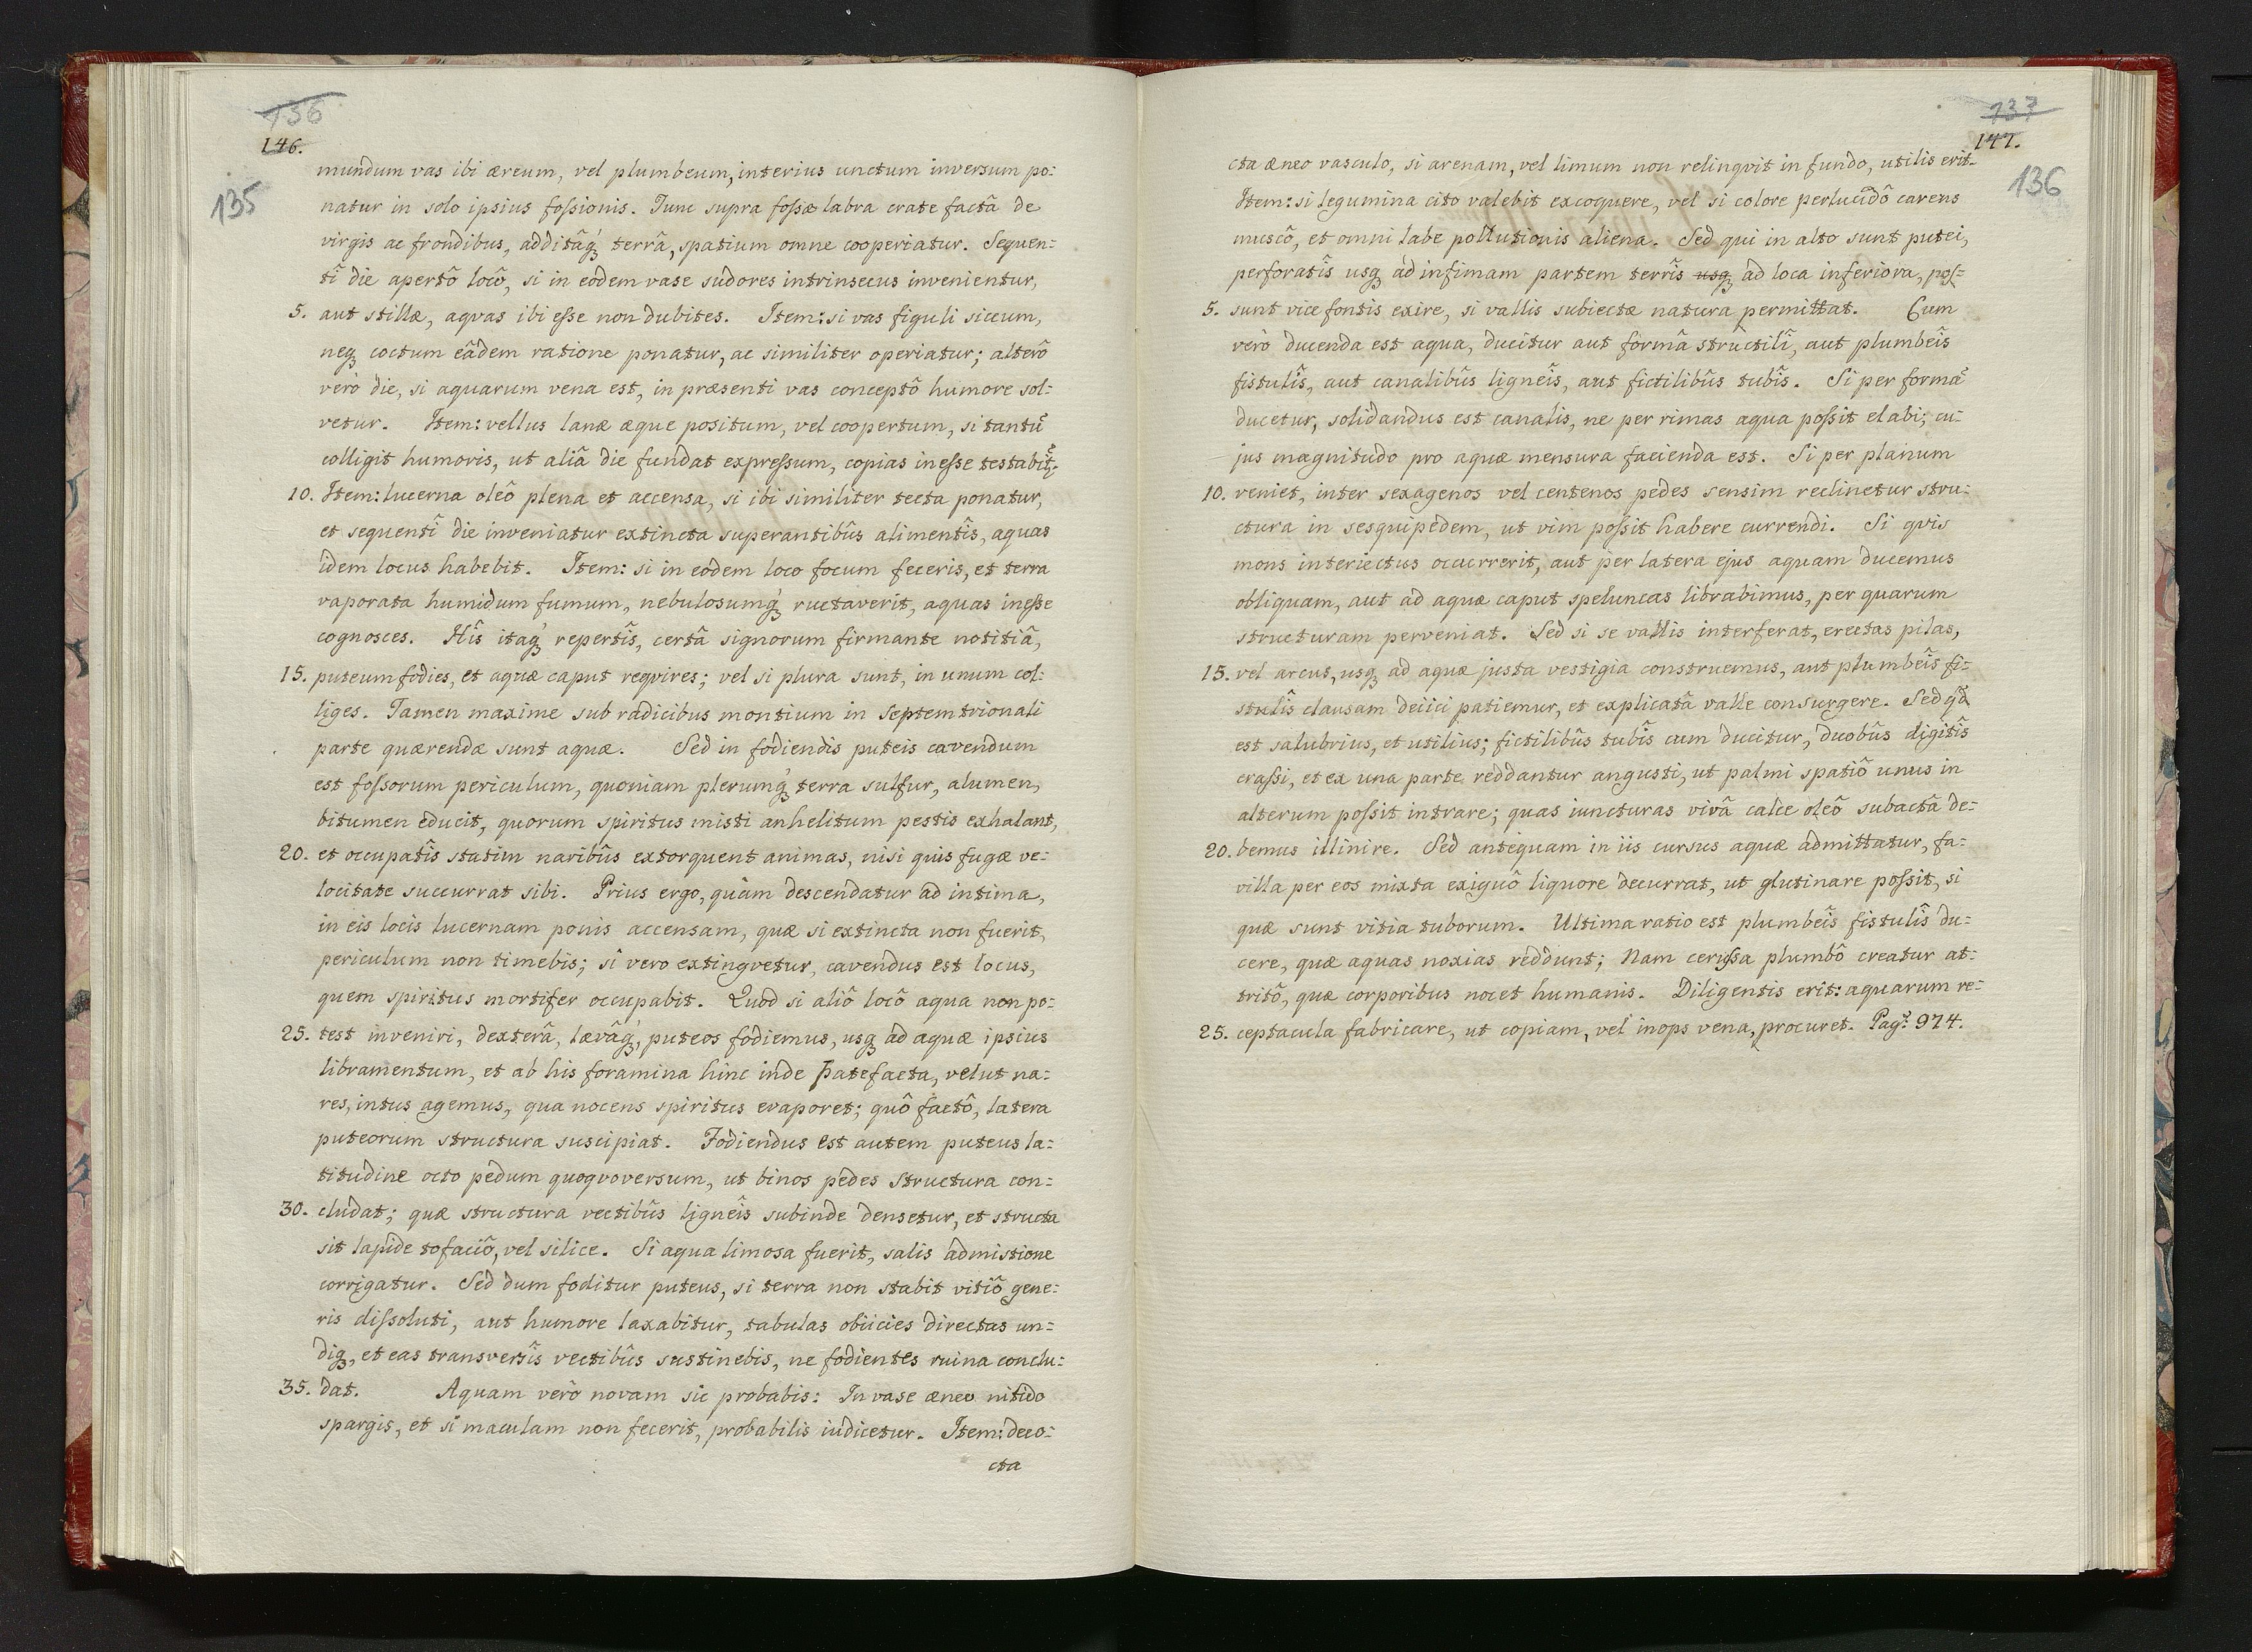 136
146.
135
mundum vas ibi æreum, vel plumbeum, interius unctum inversum po:
natur in solo ipsius foſsionis. Tunc supra foſsæ labra crate factâ de
virgis ac frondibus, additâq́ꝫ terrâ, spatium omne cooperiatur. Sequen:
tî die apertô locô, si in eodem vase sudores intrinsecus invenientur,
5. aut stillæ, aqvas ibi eſse non dubites. Item: si vas figuli siccum,
neqꝫ coctum eâdem ratione ponatur, ac similiter operiatur; alterô
verò die, si aquarum vena est, in præsenti vas conceptô humore sol:
vetur. Item: vellus lanæ æque positum, vel coopertum, si tantũ
colligit humoris, ut aliâ die fundat expreſsum, copias ineſse testabit̃:
10. Item: lucerna oleô plena et accensa, si ibi similiter tecta ponatur,
et sequentî die inveniatur extincta superantibûs alimentîs, aquas
idem locus habebit. Item: si in eodem loco focum feceris, et terra
vaporata humidum fumum, nebulosumq́ꝫ ructaverit, aquas ineſse
cognosces. Hîs itaq́ꝫ repertîs, certâ signorum firmante notitiâ,
15. puteum fodies, et aquæ caput reqvires; vel si plura sunt, in unum col:
liges. Tamen maxime sub radicibus montium in Septemtrionali
parte quærendæ sunt aquæ. Sed in fodiendis puteis cavendum
est foſsorum periculum, quoniam plerumq́ꝫ terra sulfur, alumen,
bitumen educit, quorum spiritus misti anhelitum pestis exhalant,
20. et occupatîs statim naribûs extorquent animas, nisi quis fugæ ve:
locitate succurrat sibi. Prius ergo, quàm descendatur ad intima,
in eis locis lucernam ponis accensam, quæ si extincta non fuerit,
periculum non timebis; si vero extingvetur, cavendus est locus,
quem spiritus mortifer occupabit. Quod si aliô locô aqua non po:
25. test inveniri, dexterâ, lævâq́ꝫ, puteos fodiemus, usqꝫ ad aquæ ipsius
libramentum, et ab his foramina hinc inde patefacta, velut na:
res, intus agemus, qua nocens spiritus evaporet; quô factô, latera
puteorum structura suscipiat. Fodiendus est autem puteus la:
titudine octo pedum quoqvoversum, ut binos pedes structura con:
30. cludat; quæ structura vectibûs ligneîs subinde densetur, et structa
sit lapide tofaciô, vel silice. Si aqua limosa fuerit, salis admistione
corrigatur. Sed dum foditur puteus, si terra non stabit vitiô gene:
ris diſsoluti, aut humore laxabitur, tabulas obiicies directas un:
diqꝫ, et eas transversîs vectibûs sustinebis, ne fodientes ruina conclu:
35. dat. Aquam verò novam sic probabis: In vase æneo nitido
spargis, et si maculam non fecerit, probabilis iudicetur. Item: deco:
cta
137
147.
136
cta æneo vasculo, si arenam, vel limum non relinqvit in fundo, utilis erit.
Item: si legumina cito valebit excoquere, vel si colore perlucidô carens
muscô, et omni labe pollutionis aliena. Sed qui in alto sunt putei,
perforatîs usqꝫ ad infimam partem terrîs usqꝫ ad loca inferiora, poſ:
5. sunt vice fontis exire, si vallis subiectæ natura permittat. Cum
verò ducenda est aqua, ducitur aut formâ structilî, aut plumbeîs
fistulîs, aut canalibûs ligneîs, aut fictilibûs tubîs. Si per formã
ducetur, solidandus est canalis, ne per rimas aqua poſsit elabi; cu:
jus magnitudo pro aquæ mensura facienda est. Si per planum
10. veniet, inter sexagenos vel centenos pedes sensim reclinetur stru:
ctura in sesquipedem, ut vim poſsit habere currendi. Si qvis
mons interiectus occurrerit, aut per latera ejus aquam ducemus
obliquam, aut ad aquæ caput speluncas librabimus, per quarum
structuram perveniat. Sed si se vallis interferat, erectas pilas,
15. vel arcus, usqꝫ ad aquæ justa vestigia construemus, aut plumbeîs fi:
stulîs clausam deiici patiemur, et explicatâ valle consurgere. Sed qd̃
est salubrius, et utilius; fictilibûs tubîs cum ducitur, duobûs digitîs
craſsi, et ex una parte reddantur angusti, ut palmi spatiô unus in
alterum poſsit intrare; quas iuncturas vivâ calce oleô subactâ de:
20. bemus illinire. Sed antequam in iis cursus aquæ admittatur, fa:
villa per eos mixta exiguô liquore decurrat, ut glutinare poſsit, si
quæ sunt vitia tuborum. Ultima ratio est plumbeîs fistulîs du:
cere, quæ aquas noxias reddunt; Nam ceruſsa plumbô creatur at:
tritô, quæ corporibus nocet humanis. Diligentis erit: aquarum re:
25. ceptacula fabricare, ut copiam, vel inops vena, procuret. Pag: 974.